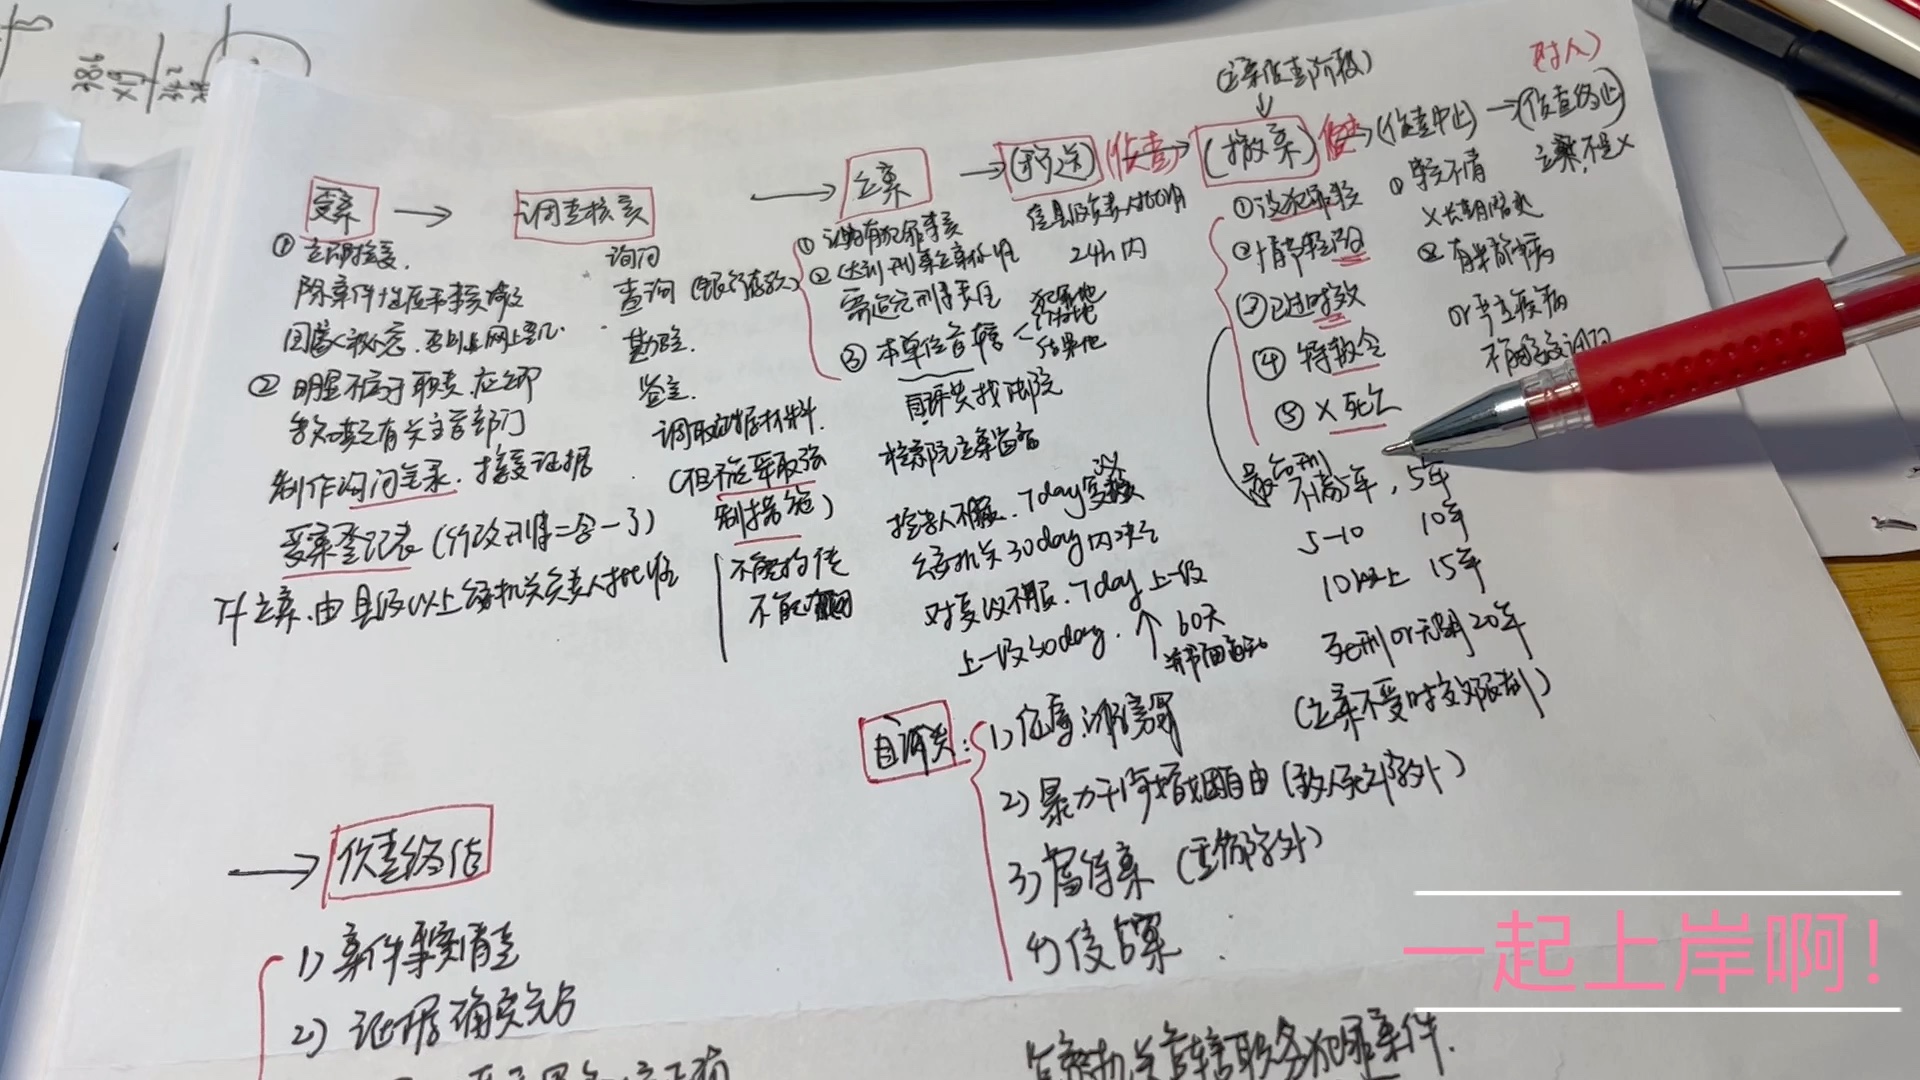 (立案侦查阶段)
(对人)
受案 → 调查核实 → 立案 → (移送) (侦查) → (撤案) → (侦查中止) → (侦查终止)
立案,不是X
① 立即接受.
除案件性质和事实涉及
国家秘密.否则上网登记.
② 明显不属于职责,应立即
告知其它有关主管部门
制作询问笔录.接受证据
受案登记表(行政刑事二合一了)
不立案.由县级以上公安机关负责人批准
询问
查询(银行存款)
勘验.
鉴定.
调取证据材料.
(但不能采取强
制措施)
不能拘传
① 认为有犯罪事实
② 达到刑事立案标准
需追究刑事责任
③ 本单位管辖
犯罪地
结果地
自诉类找法院
检察院立案监督
控告人不服.7day复议
公安机关30day内决定
对复议不服.7day上一级
上一级30day.↑60天
县级负责人批准
24h内
① 没犯罪事实
② 情节轻微
③ 已过时效
④ 特赦令
⑤ X死亡
最高刑
不满5年,5年
5-10 10年
10以上 15年
死刑or无期20年
(立案不受时效限制)
① 事实不清
X长期潜逃
② 有精神病
or严重疾病
不能接受讯问
自诉类:
1) 侮辱、诽谤罪
2) 暴力干涉婚姻自由(致人死亡除外)
3) 虐待案(重伤除外)
4) 侵占案
→ 侦查终结
1) 案件事实清楚
2) 证据确实充分
公安机关管辖职务犯罪案件.
一起上岸啊!